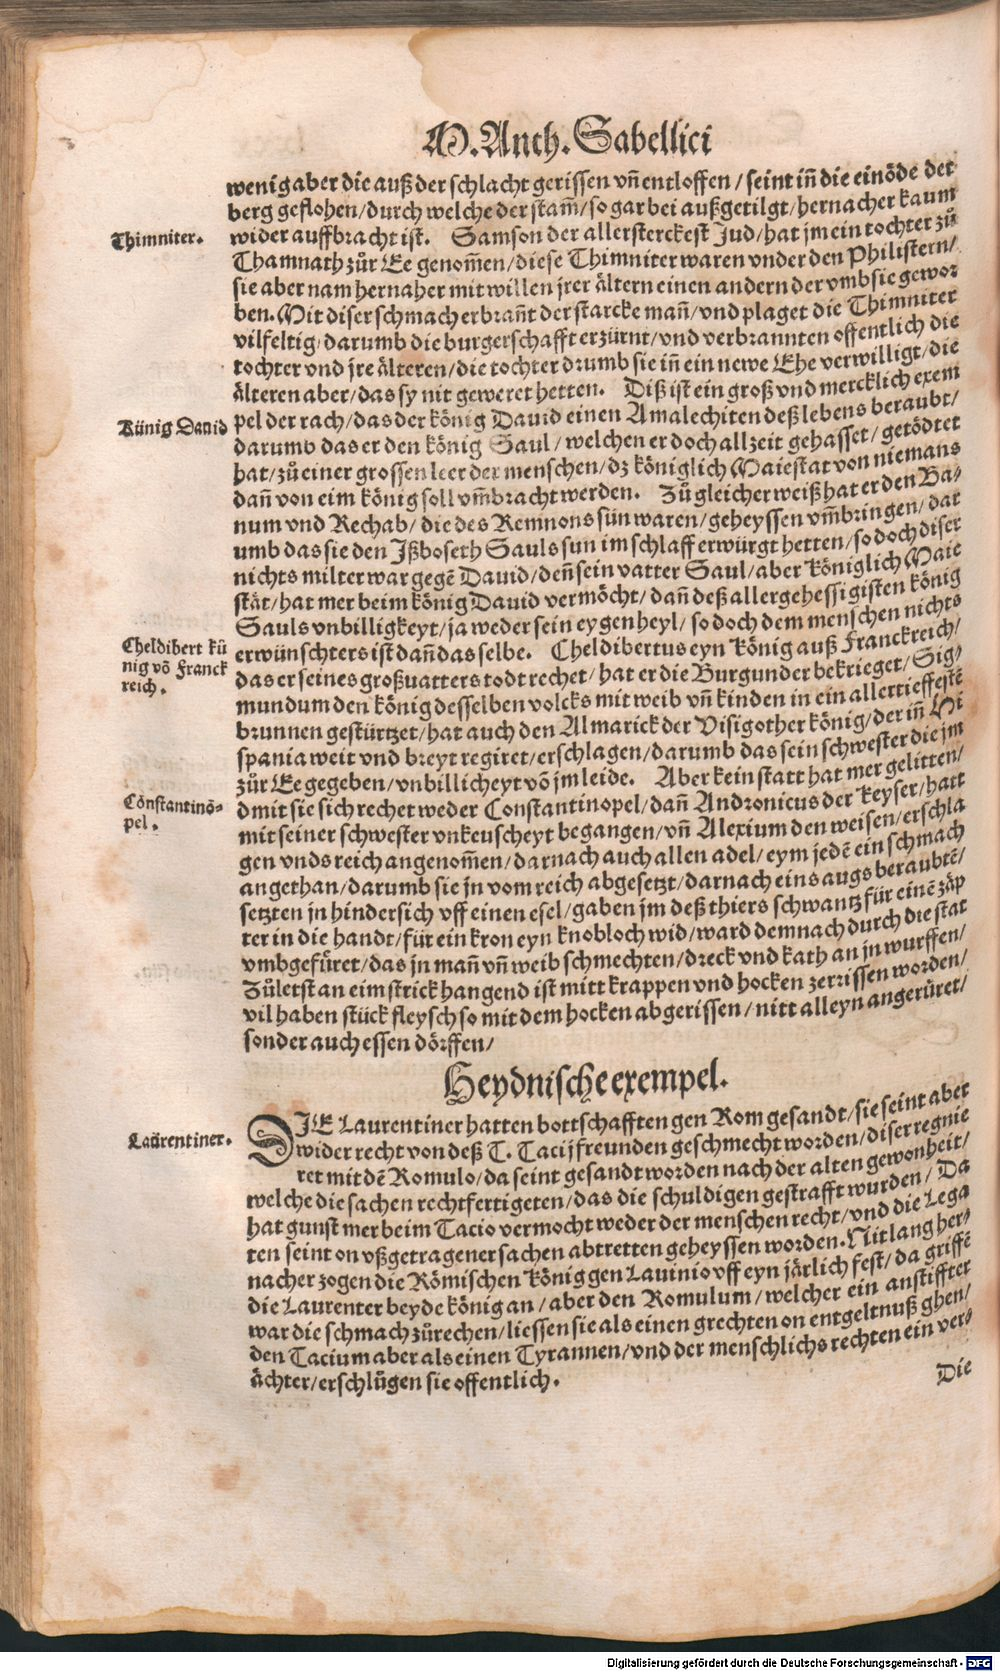 M. Anth. Sabellici
wenig aber die auß der schlacht gerissen vñ entloffen / seint iñ die einöde der
berg geflohen / durch welche der stam̃ / so gar bei außgetilgt / hernacher kaum
Thimniter. wider auffbracht ist. Samson der allersterckest Jud / hat jm ein tochter zů
Thamnath zůr Ee genom̃en / diese Thimniter waren vnder den Philistern /
sie aber nam hernaher mit willen jrer ältern einen andern der vmb sie gewor
ben. Mit diser schmach erbrañt der starcke mañ / vnd plaget die Thimniter
vilfeltig / darumb die burgerschafft erzürnt / vnd verbrannten offentlich die
tochter vnd jre älteren / die tochter drumb sie iñ ein newe Ehe verwilligt / die
älteren aber / das sy nit geweret hetten. Diß ist ein groß vnd mercklich exem
Künig Dauid pel der rach / das der könig Dauid einen Amalechiten deß lebens beraubt /
darumb das er den könig Saul / welchen er doch allzeit gehasset / getödtet
hat / zů einer grossen leer der menschen / dz königlich Maiestat von niemans
dañ von eim könig soll vm̃bracht werden. Zů gleicher weiß hat er den Ba-
num vnd Rechab / die des Remnons sün waren / geheyssen vm̃bringen / dar
umb das sie den Jßboseth Sauls sun im schlaff erwürgt hetten / so doch diser
nichts milter war gegē Dauid / deñ sein vatter Saul / aber königlich Maie
stät / hat mer beim könig Dauid vermöcht / dañ deß allergehessigisten könig
Sauls vnbilligkeyt / ja weder sein eygen heyl / so doch dem menschen nichts
Cheldibert kü
nig võ Franck
reich.
erwünschters ist dañ das selbe. Cheldibertus eyn könig auß Franckreich /
das er seines großuatters todt rechet / hat er die Burgunder bekrieget / Sig-
mundum den könig desselben volcks mit weib vñ kinden in ein allertieffestē
brunnen gestürtzet / hat auch den Almarick der Visigother könig / der iñ Hi
spania weit vnd breyt regiret / erschlagen / darumb das sein schwester die jm
zůr Ee gegeben / vnbillicheyt võ jm leide. Aber kein statt hat mer gelitten /
Cõnstantinõ-
pel.
dmit sie sich rechet weder Constantinopel / dañ Andronicus der keyser / hatt
mit seiner schwester vnkeuscheyt begangen / vñ Alexium den weisen / erschla
gen vnds reich angenom̃en / darnach auch allen adel / eym jedē ein schmach
angethan / darumb sie jn vom reich abgesetzt / darnach eins augs beraubtē /
setzten jn hindersich vff einen esel / gaben jm deß thiers schwantz für einē zäp
ter in die handt / für ein kron eyn knobloch wid / ward demnach durch die stat
vmbgefüret / das jn mañ vñ weib schmechten / dreck vnd kath an jn wurffen /
Zůletst an eim strick hangend ist mitt krappen vnd hocken zerrissen worden /
vil haben stück fleysch so mit dem hocken abgerissen / nitt alleyn angerüret /
sonder auch essen dörffen /
Heydnische exempel.
Laürentiner. DIE Laurentiner hatten bottschafften gen Rom gesandt / sie seint aber
wider recht von deß T. Tacij freunden geschmecht worden / diser regnie
ret mit dē Romulo / da seint gesandt worden nach der alten gewonheit /
welche die sachen rechtfertigeten / das die schuldigen gestrafft wurden / Da
hat gunst mer beim Tacio vermocht weder der menschen recht / vnd die Lega
ten seint on vßgetragener sachen abtretten geheyssen worden. Nit lang her-
nacher zogen die Römischen könig gen Lauinio vff eyn järlich fest / da griffē
die Laurenter beyde könig an / aber den Romulum / welcher ein anstiffter
war die schmach zůrechen / liessen sie als einen grechten on entgeltnuß ghen /
den Tacium aber als einen Tyrannen / vnd der menschlichs rechten ein ver-
ächter / erschlůgen sie offentlich.
Die
Digitalisierung gefördert durch die Deutsche Forschungsgemeinschaft - DFG